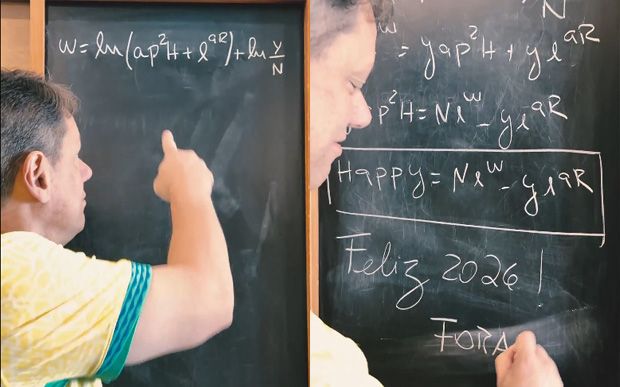 w = ln(ap²H + e^aR) + ln y/N
N
w = yap²H + ye^aR
p²H = Ne^w - ye^aR
Happy = Ne^w - ye^aR
Feliz 2026!
FORA